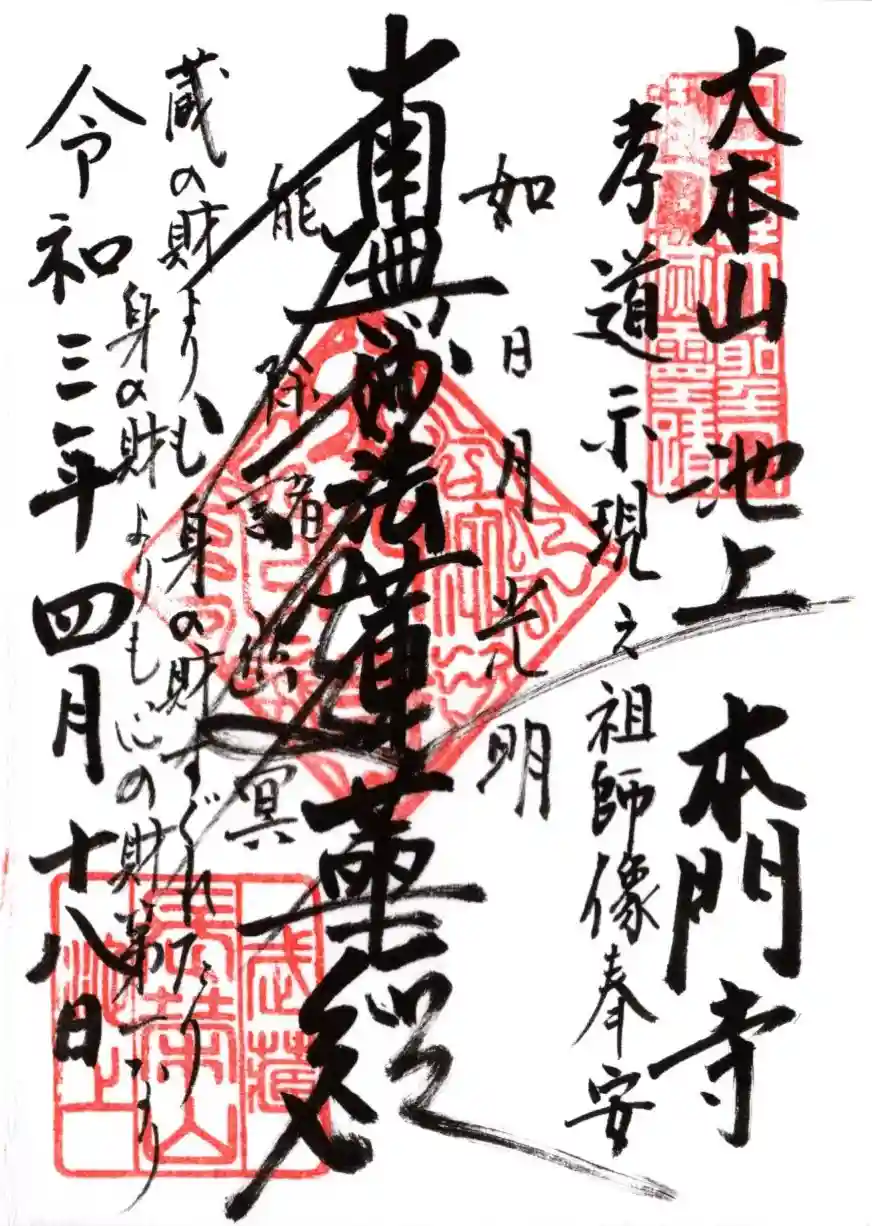 大本山 池上 本門寺
孝道示現之祖師像奉安
如日月光明
南無妙法蓮華経
能除諸幽冥
蔵の財よりも身の財すぐれたり
身の財よりも心の財第一なり
令和三年四月十八日
武蔵
長栄山
池上